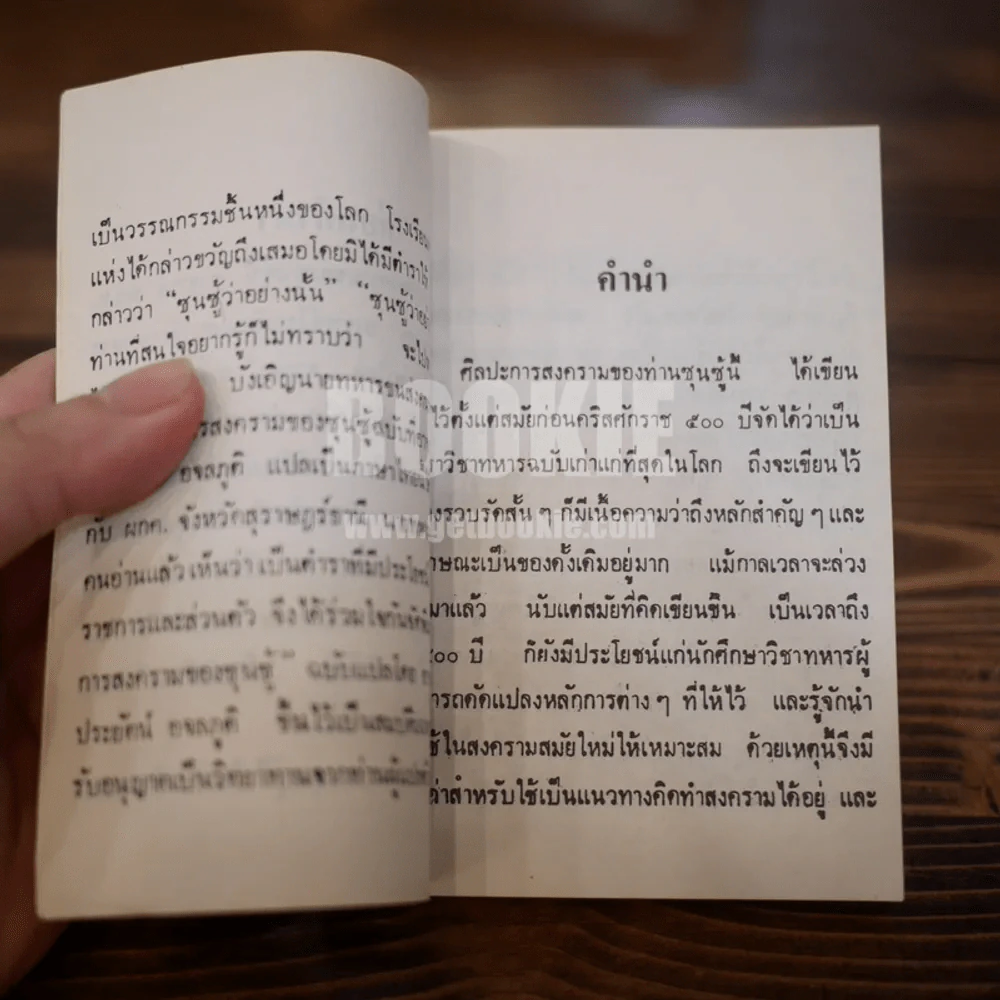 เป็นวรรณกรรมชิ้นหนึ่งของโลก โรงเรียน
แห่งได้กล่าวขวัญถึงเสมอโดยมิได้มีตำราไว้
กล่าวว่า “ซุนซู้ว่าอย่างนั้น” “ซุนซู้ว่าอย่
ท่านที่สนใจอยากรู้ก็ไม่ทราบว่า จะไป
บังเอิญนายทหาร
สงครามของซุนซู้ฉบับที่
อจลภูติ แปลเป็นภาษาไทย
กับ ผกค. จังหวัดสุราษฎร์ธานี
คนอ่านแล้วเห็นว่า เป็นตำราที่มีประโยชน์
ราชการและส่วนตัว จึงได้ร่วมใจกันจัด
การสงครามของซุนซู้” ฉบับแปลโดย
ประยัตน์ อจลภูติ ขึ้นไว้เป็น
รับอนุญาตเป็นวิทยาทานจากท่านผู้แปล
คำนำ
ศิลปะการสงครามของท่านซุนซู้นี้ ได้เขียน
ไว้ตั้งแต่สมัยก่อนคริสศักราช ๕๐๐ ปีจัดได้ว่าเป็น
าวิชาทหารฉบับเก่าแก่ที่สุดในโลก ถึงจะเขียนไว้
งรวบรัดสั้น ๆ ก็มีเนื้อความว่าถึงหลักสำคัญ ๆ และ
ักษณะเป็นของดั้งเดิมอยู่มาก แม้กาลเวลาจะล่วง
มาแล้ว นับแต่สมัยที่คิดเขียนขึ้น เป็นเวลาถึง
๕๐๐ ปี ก็ยังมีประโยชน์แก่นักศึกษาวิชาทหารผู้
ารถดัดแปลงหลักการต่าง ๆ ที่ให้ไว้ และรู้จักนำ
ช้ในสงครามสมัยใหม่ให้เหมาะสม ด้วยเหตุนี้จึงมี
ค่าสำหรับใช้เป็นแนวทางคิดทำสงครามได้อยู่ และ
BOOKIE
www.getbookie.com